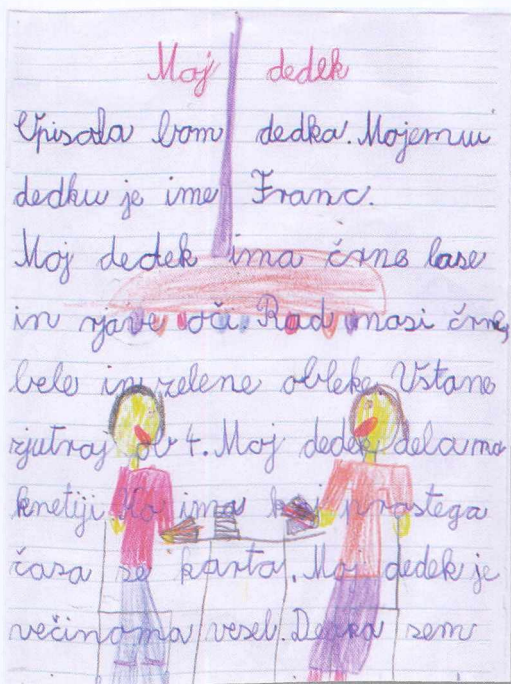 Moj dedek
Opisala bom dedka. Mojemu
dedku je ime Franc.
Moj dedek ima črne lase
in rjave oči. Rad nosi črne,
bele in zelene obleke. Vstane
zjutraj ob 4. Moj dedek dela na
kmetiji. Ko ima kaj prostega
časa se karta. Moj dedek je
večinoma vesel. Dedka sem